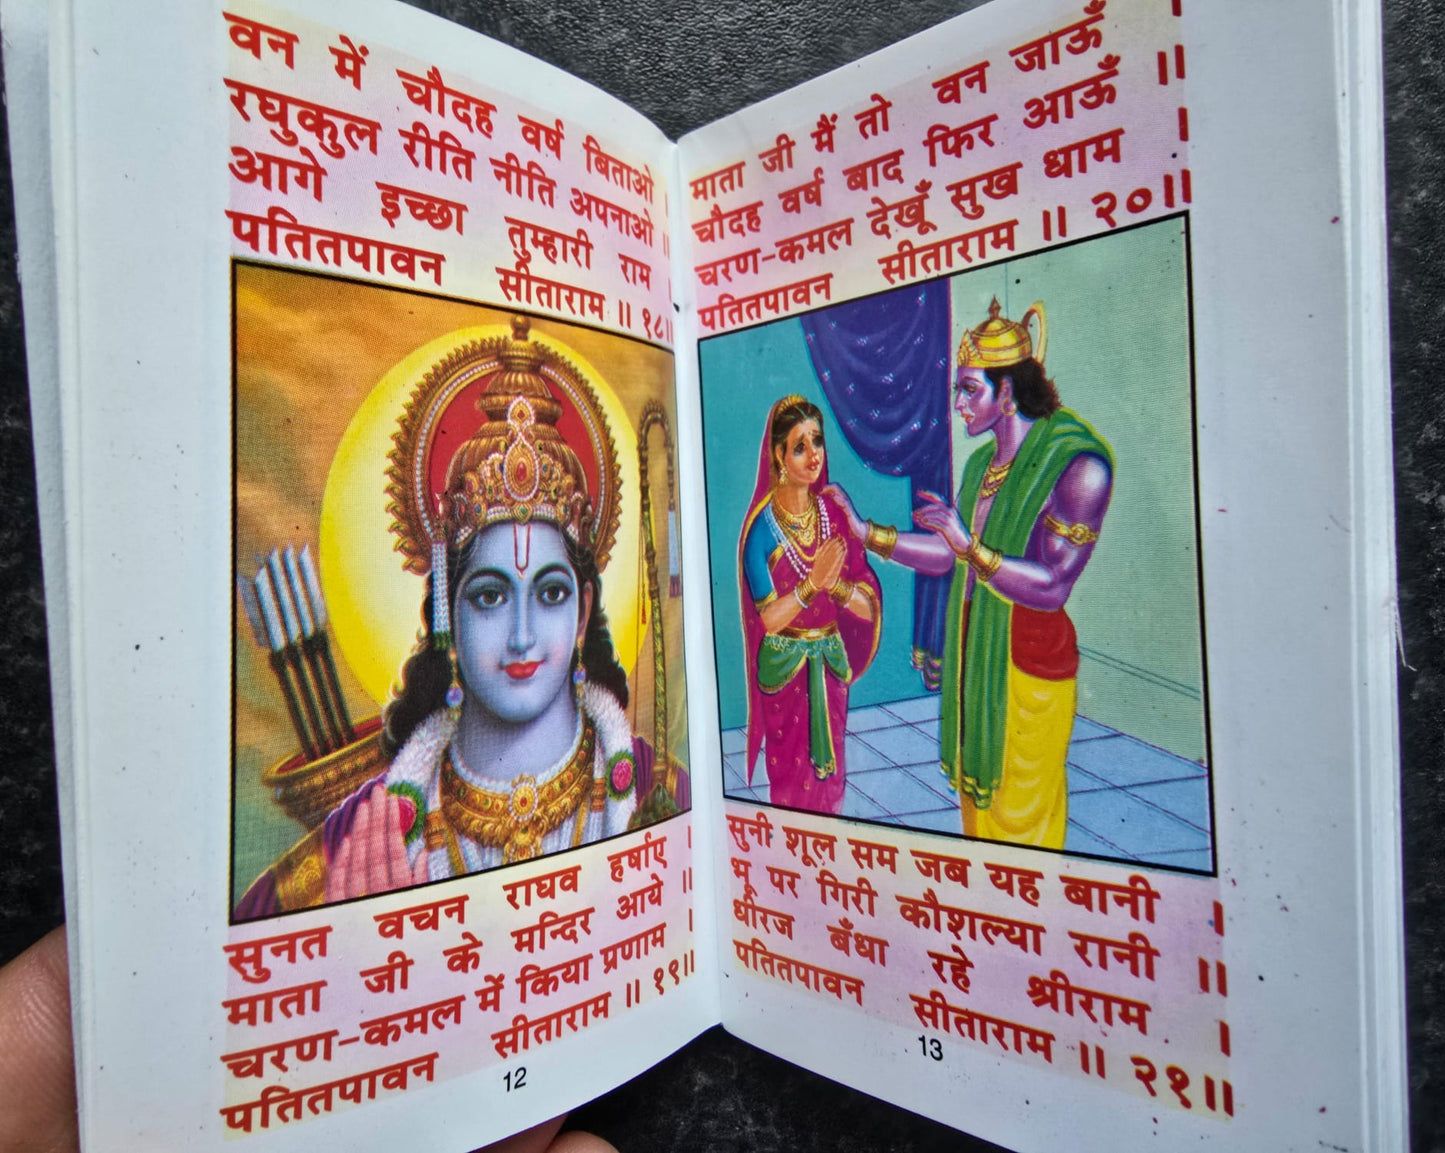 वन में चौदह वर्ष बिताओ ।
रघुकुल रीति नीति अपनाओ ॥
आगे इच्छा तुम्हारी राम ।
पतितपावन सीताराम ॥ १८॥
सुनत वचन राघव हर्षाए ।
माता जी के मन्दिर आये ॥
चरण-कमल में किया प्रणाम ।
पतितपावन सीताराम ॥ १९॥
12
माता जी मैं तो वन जाऊँ ।
चौदह वर्ष बाद फिर आऊँ ॥
चरण-कमल देखूँ सुख धाम ।
पतितपावन सीताराम ॥ २०॥
सुनी शूल सम जब यह बानी ।
भू पर गिरी कौशल्या रानी ॥
धीरज बँधा रहे श्रीराम ।
पतितपावन सीताराम ॥ २१॥
13